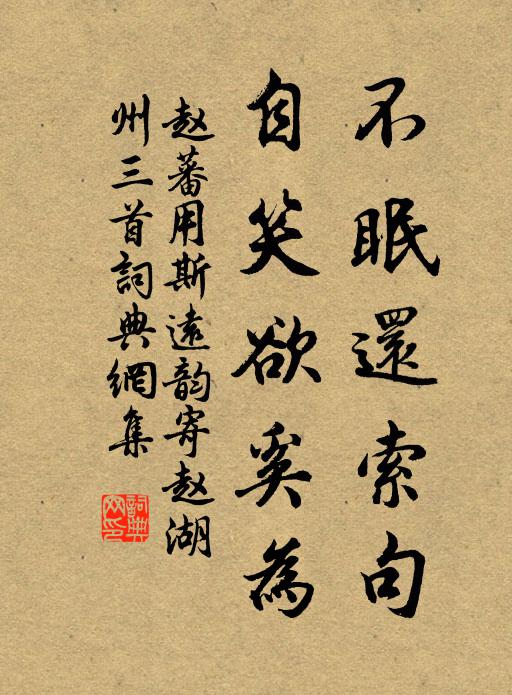 不眠還索句
自笑欲奚為
赵蕃用斯遠韵寄赵湖
州三首詞典網集
詞典网印